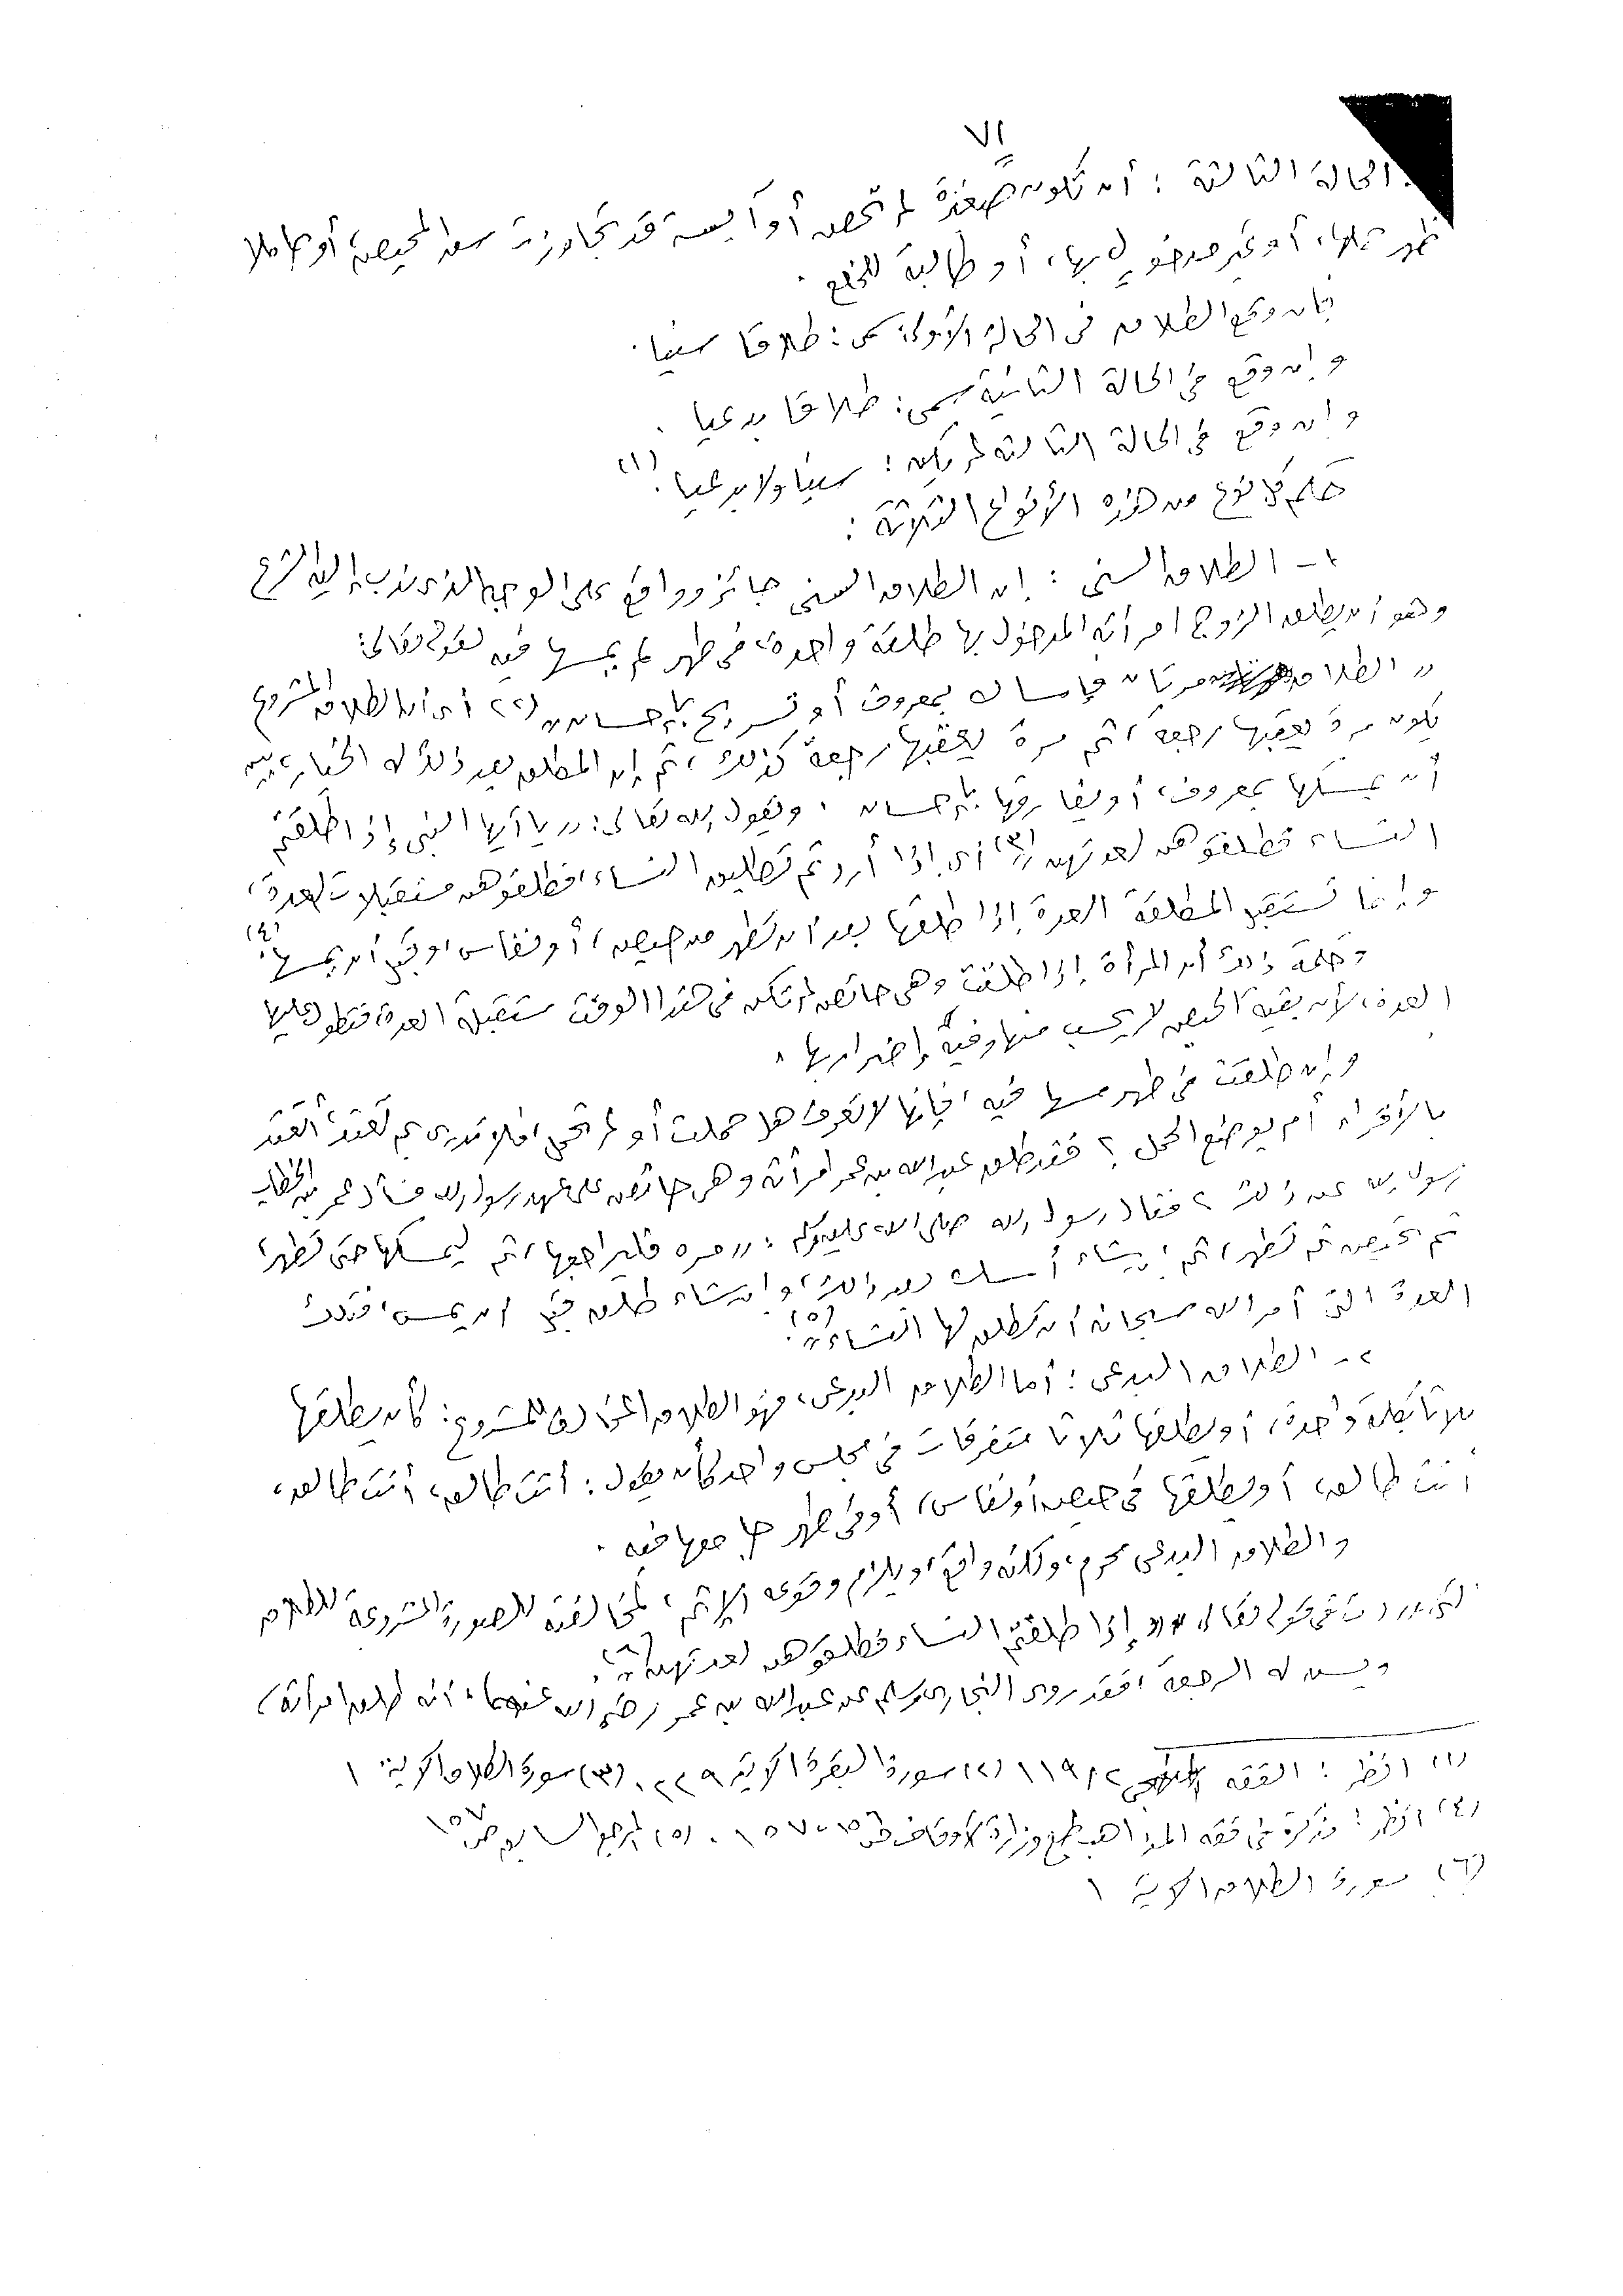 ٧١
الحالة الثالثة : أن تكون صغيرة لم تحض أو آيسة قد تجاوزت سن المحيض، أو حاملا
ظهر حملها، أو غير مدخول بها، أو طالبة للخلع .
فإن وقع الطلاق في الحالة الأولى سمى : طلاقا سنيا .
وإن وقع في الحالة الثانية سمى : طلاقا بدعيا .
وإن وقع في الحالة الثالثة لم يكن : سنيا ولا بدعيا . (١)
حكم كل نوع من هذه الأنواع الثلاثة :
١ - الطلاق السني : إن الطلاق السني جائز وواقع على الوجه الذى ندب إليه الشرع
وهو أن يطلق الزوج امرأته المدخول بها طلقة واحدة، في طهر لم يمسها فيه لقوله تعالى :
" الطلاق مرتان فإمساك بمعروف أو تسريح بإحسان " (٢) أى أن الطلاق المشروع
يكون مرة يعقبها رجعة، ثم مرة يعقبها رجعة كذلك، ثم إن المطلق بعد ذلك له الخيار، بين
أن يمسكها بمعروف، أو يفارقها بإحسان . ويقول الله تعالى : " يا أيها النبى إذا طلقتم
النساء فطلقوهن لعدتهن " (٣) أى إذا أردتم تطليق النساء، فطلقوهن مستقبلات العدة،
وإنما تستقبل المطلقة العدة إذا طلقها بعد أن تطهر من حيض، أو نفاس، وقبل أن يمسها . (٤)
وحكمة ذلك أن المرأة إذا طلقت وهى حائض لم تكن في هذا الوقت مستقبلة العدة، فتطول عليها
العدة، لأن بقية الحيض لا يحسب منها وفيه إضرار بها .
وإن طلقت في طهر مسها فيه، فإنها لا تعرف هل حملت أو لم تحمل، فلا تدرى بم تعتد، أتعتد
بالأقراء أم بوضع الحمل ؟ فقد طلق عبد الله بن عمر امرأته وهى حائض على عهد رسول الله فسأل عمر بن الخطاب
رسول الله عن ذلك ؟ فقال رسول الله صلى الله عليه وسلم : " مره فليراجعها، ثم ليمسكها حتى تطهر،
ثم تحيض ثم تطهر، ثم إن شاء أمسك بعد ذلك، وإن شاء طلق قبل أن يمس، فتلك
العدة التى أمر الله سبحانه أن تطلق لها النساء " . (٥)
٢ - الطلاق البدعى : أما الطلاق البدعى، فهو الطلاق المخالف للمشروع : كأن يطلقها
ثلاثا بكلمة واحدة، أو يطلقها ثلاثا متفرقات في مجلس واحد كأن يقول : أنت طالق، أنت طالق،
أنت طالق، أو يطلقها في حيض أو نفاس، أو في طهر جامعها فيه .
والطلاق البدعى محرم، ولكنه واقع، ويلزم وقوعه الإثم، لمخالفته للصورة المشروعة للطلاق
التى وردت في قوله تعالى " إذا طلقتم النساء فطلقوهن لعدتهن " (٦) .
ويسن له الرجعة، فقد روى البخارى ومسلم عن عبد الله بن عمر رضى الله عنهما، أنه طلق امرأته،
(١) انظر : الفقه ٢/١١٩ (٢) سورة البقرة الآية ٢٢٩ . (٣) سورة الطلاق الآية ١
(٤) انظر : مذكرة في فقه المذاهب طبع وزارة الأوقاف . (٥) المرجع السابق ص ١٥٧
(٦) سورة الطلاق الآية ١